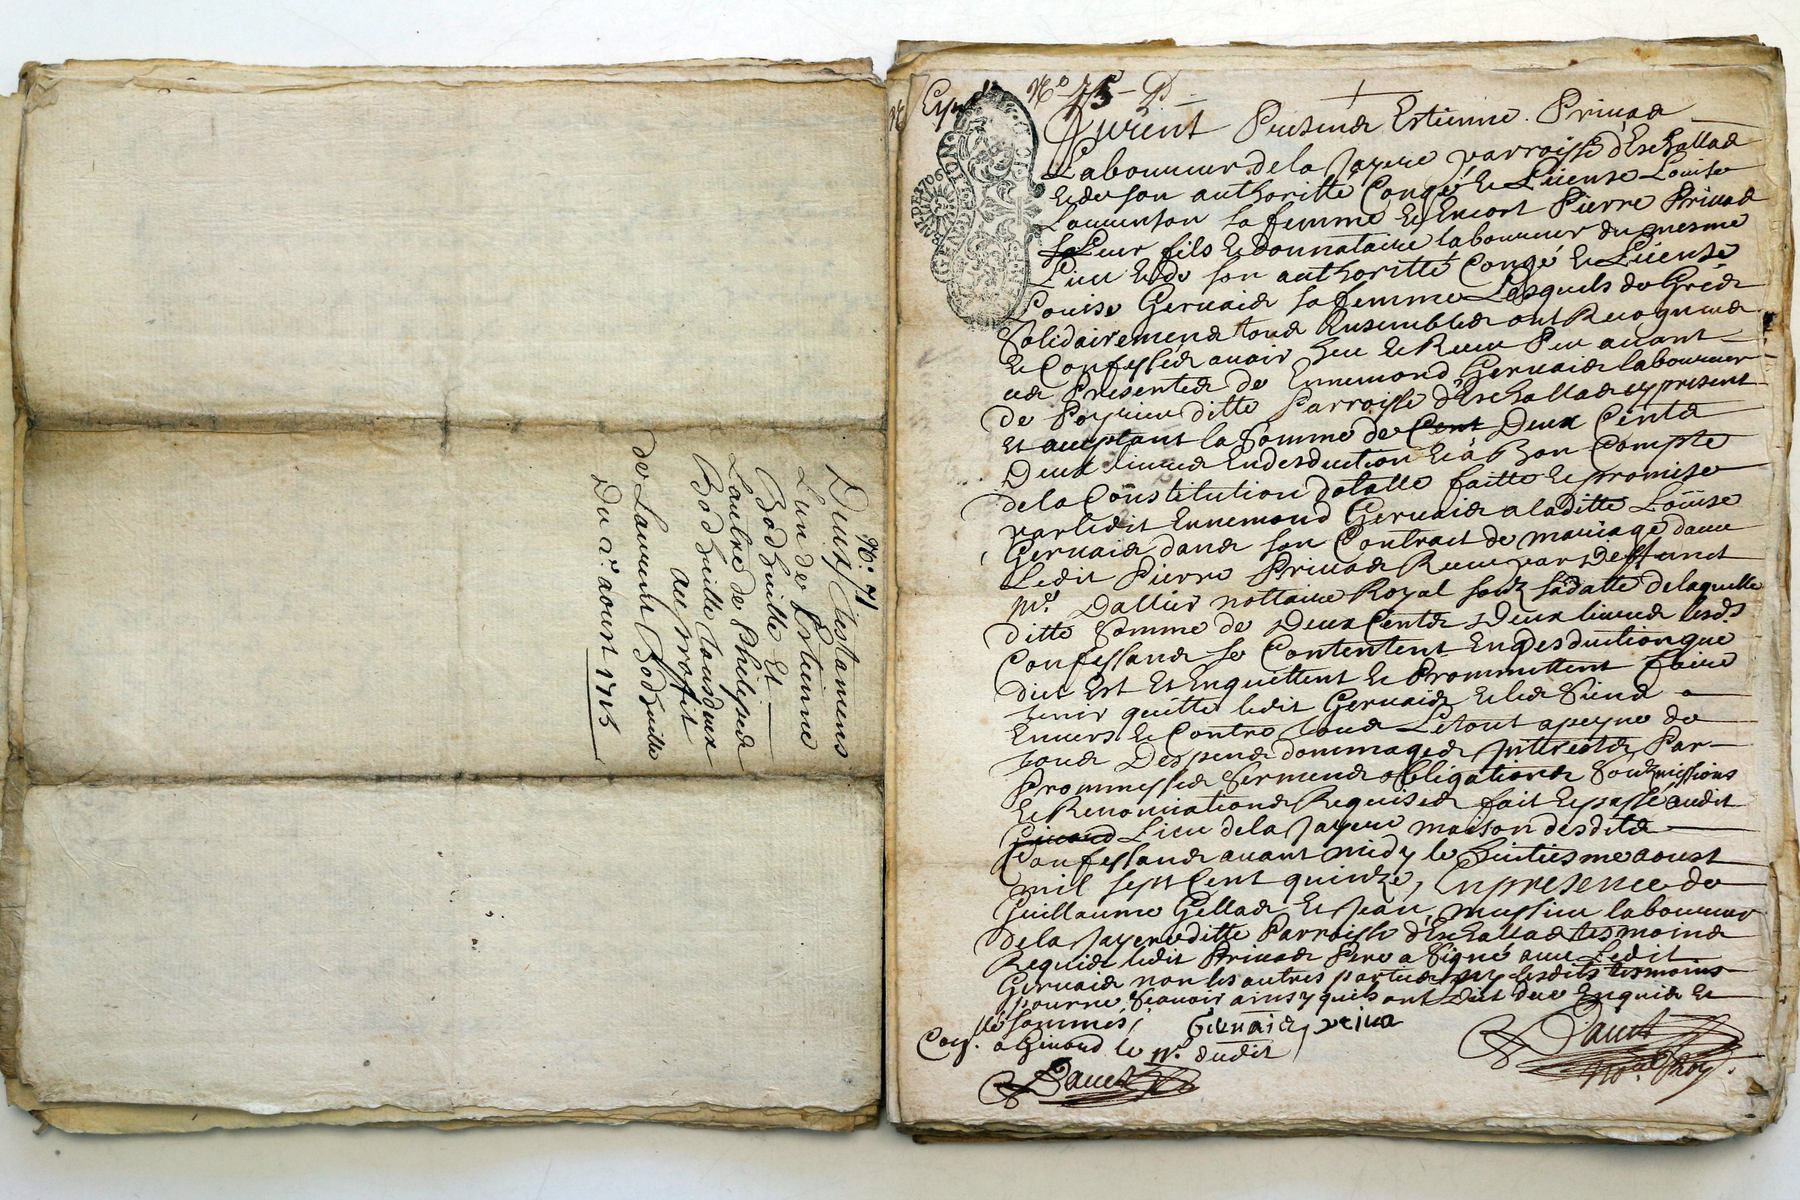 N°. 71
Deux testamens
L'un de Estienne
Bodhuille Et
Lautre de Philippe
Bodhuille tous deux
au proffit
de Laurent Bodhuille
Du 2e. aoust 1715
Exp
N° 75
Furent Presendz Estienne Privad
Laboureur de la Jayere parroisse d'Eschallad
Et de son authoritte Congé et License Louise
sa femme Et Encort Pierre Privad
Leur fils Et donnataire laboureur du mesme
Lieu Et de son authoritté Congé Et License
Louise Gervaidz sa femme Lesquels de Gredz
Solidairemend toudz Ensembledz ont Recognudz
Et Confessédz avoir heu Et Receu Peu avant
cedz Presentedz de Ennemond Gervaidz laboureur
de ditte Parroisse d'Eschalladz cy present
Et aceptant la Somme de Cent Deux Centdz
Deux livredz En desduction Et à Bon Compte
de la Constitution dotalle faitte Et promise
par ledit Ennemond Gervaidz a laditte Louise
Gervaidz dandz son Contract de mariage avec
Ledit Pierre Privadz Receu par Deffunct
Me. Dallier nottaire Royal soubz sa datte de laquelle
ditte Somme de Deux Centdz Deux livredz lesds.
Confessandz se Contentent En desduction que
dict Est Et Enquittent Et Promettent faire
tenir quitte ledit Gervaidz Et ledz Siendz a
Envers Et Contre toudz Le tout a peyne de
toudz Despendz dommagedz Inttrestdz Par
Prommessedz Sermendz obligationdz Soubzmissions
Et Renonciationdz Requisedz fait Et passé audit
Givord Lieu de la Jayere maison desditdz
Confessandz avant midy le huitiesme aoust
mil sept Cent quinze, En presence de
Guillaume Gelladz Et Jean laboureur
de la Jayere ditte Parroisse d'Eschalladz tesmoindz
Requidz ledit Privadz Pere a Signé avec Ledit
Gervaidz non les autres partiedz ny lesdits tesmoins
pour ne Scavoir ainsy quils ont Dict de ce Enquidz Et
sommés,
Gervaidz priva
a Givord le 11e. dudit